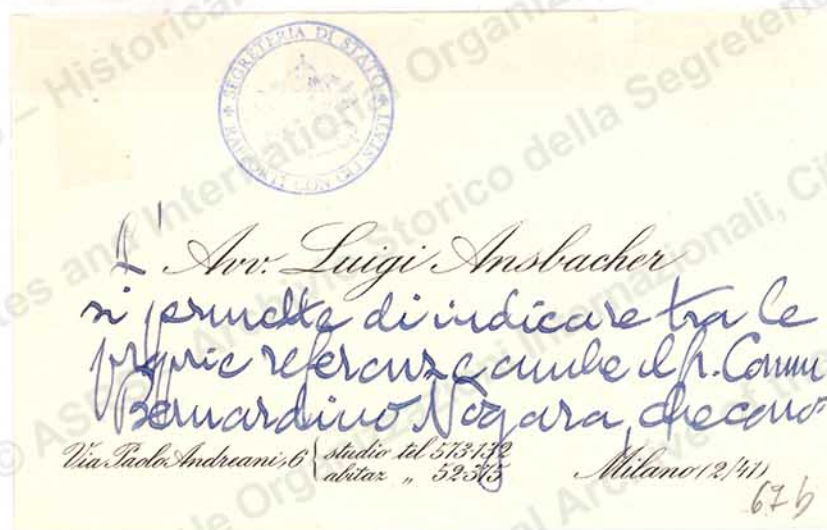 SEGRETERIA DI STATO
RAPPORTI CON GLI STATI
L' Avv. Luigi Ansbacher
si permette di indicare tra le
proprie referenze anche il Comm
Bernardino Nogara, che cono
Via Paolo Andreani, 6 { studio tel 573-132
abitaz „ 52-375
Milano (2/41)
67 b